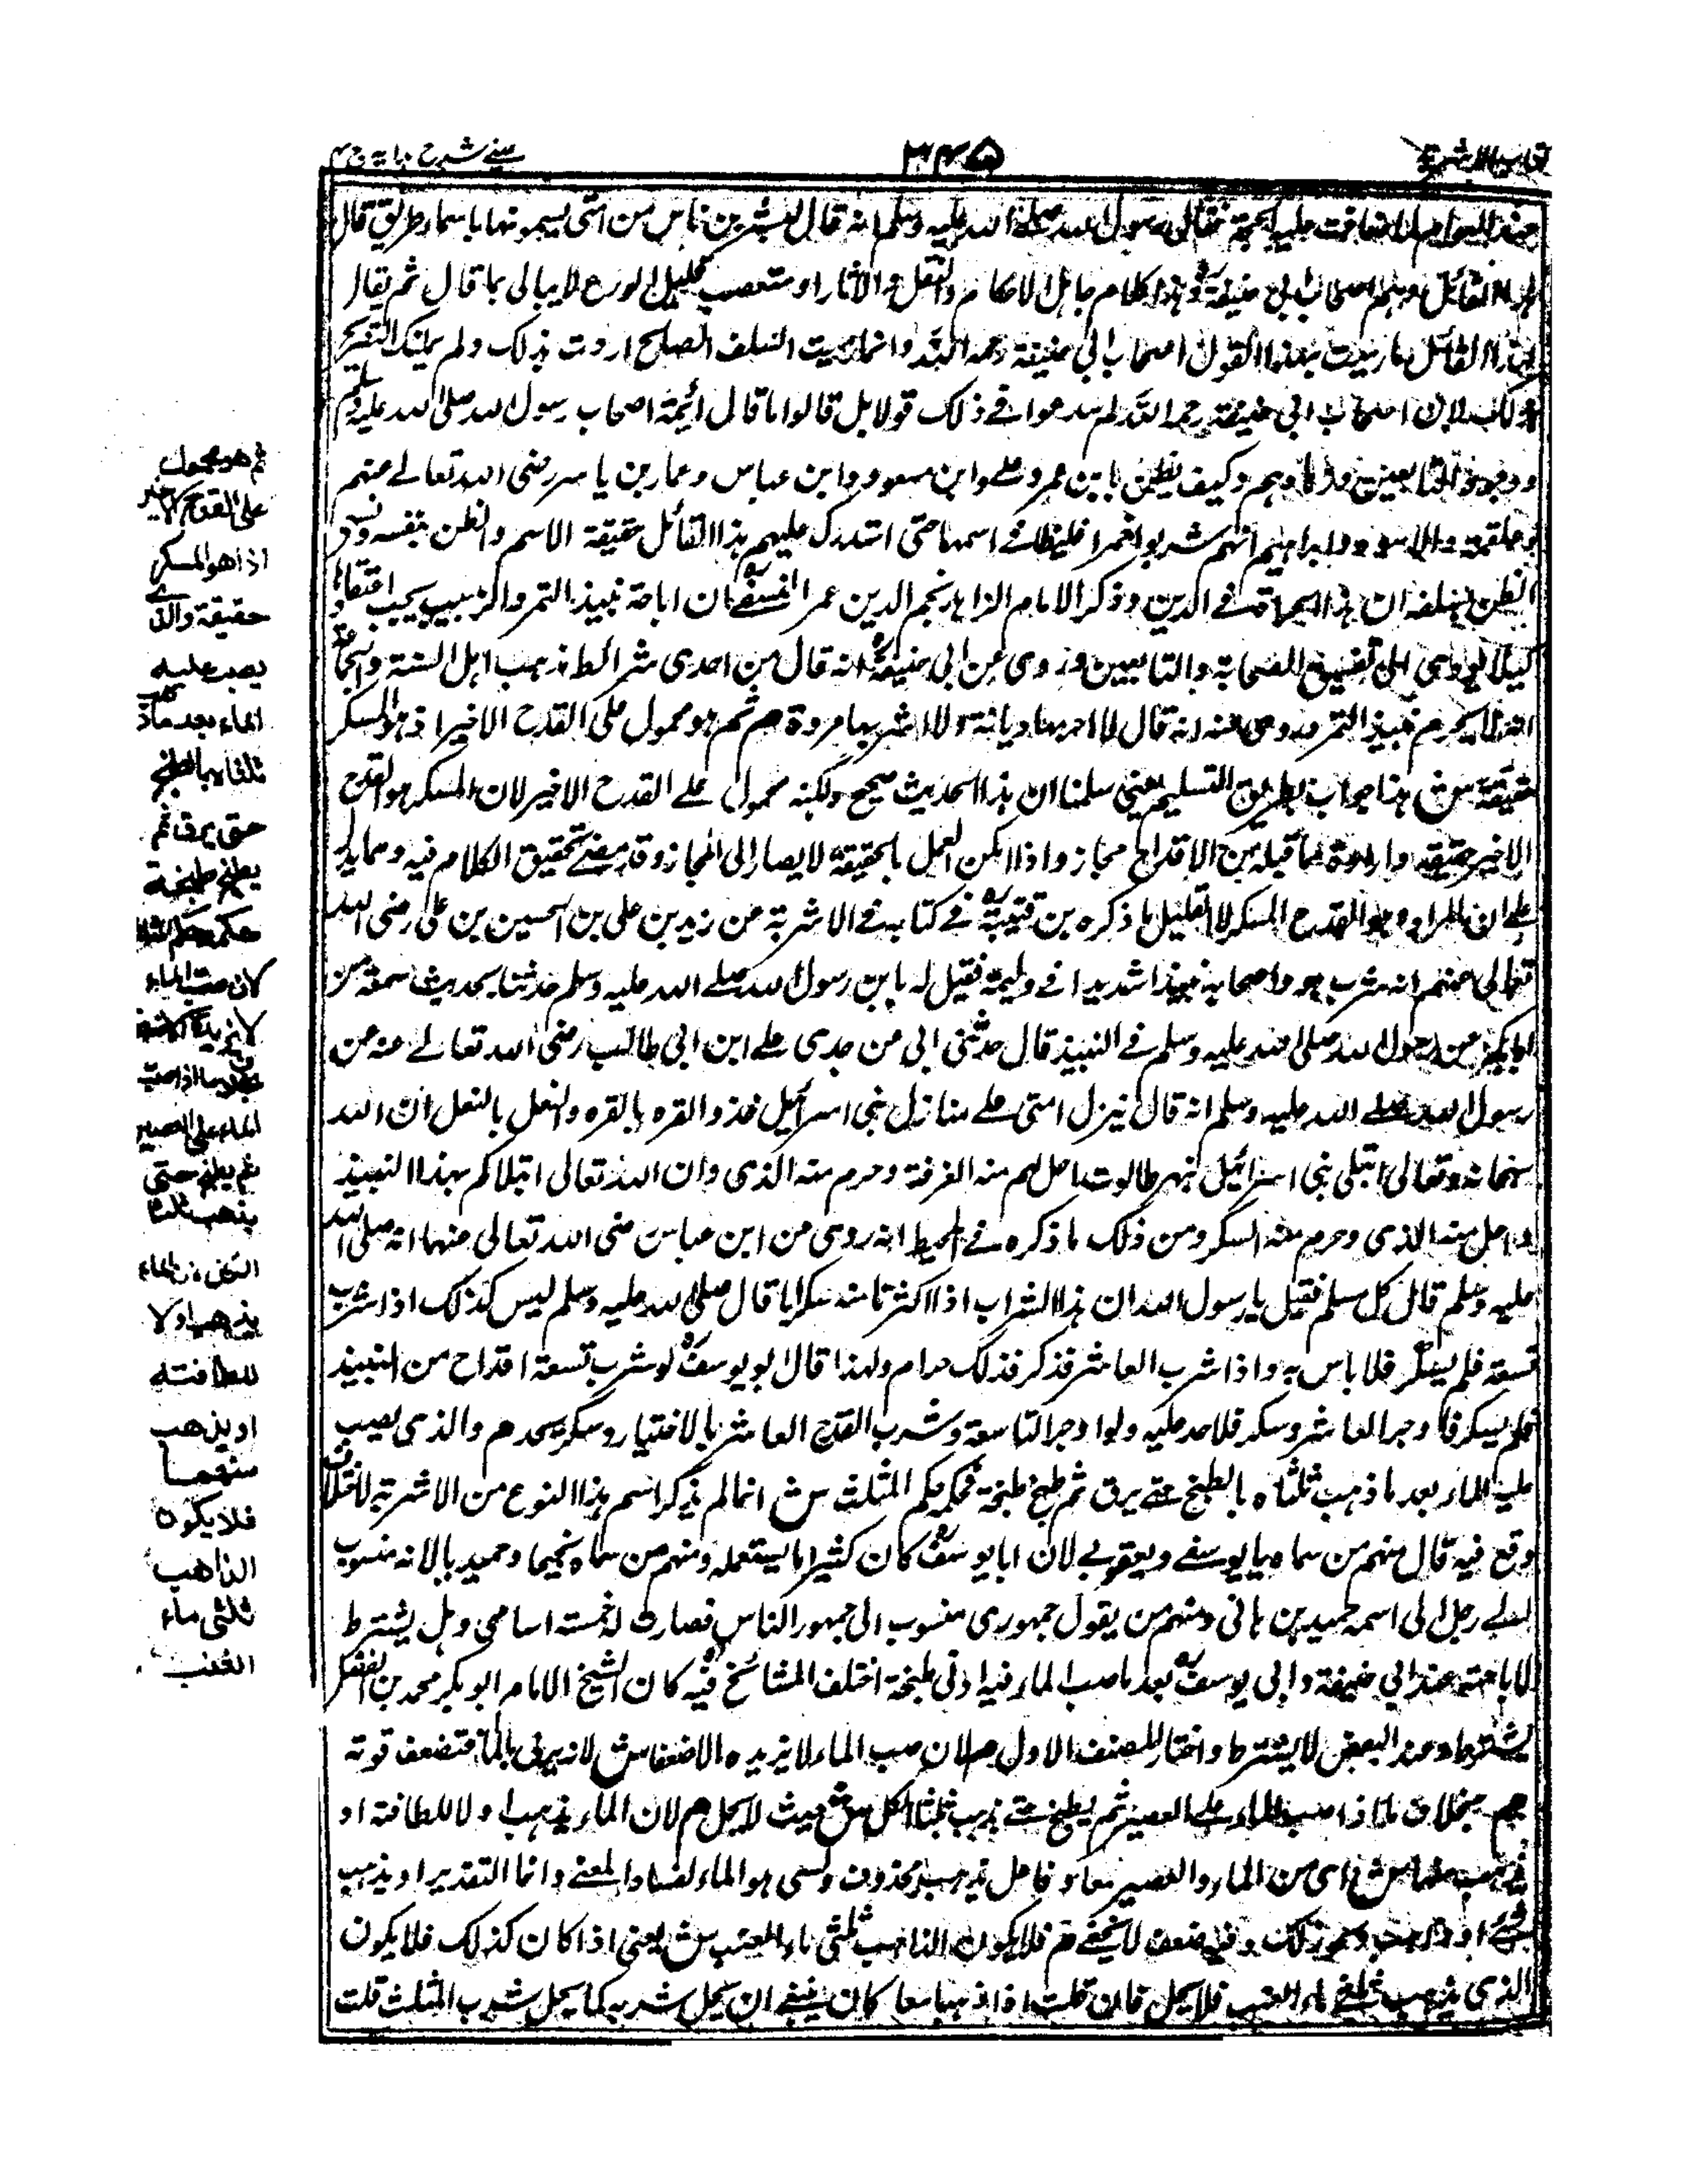 كتاب الاشربة
٣٤٥
عينے شرح ہدایہ ج ٤
رسول الله صلے الله عليه وسلم انه قال ليشربن ناس من امتى يسمونها باسماء وطريق قال
القائل وهم اصحاب ابى حنيفة وهذا كلام جاهل الاحكام والنقل والآثار او متعصب قليل الورع لا يبالى بما قال ثم يقال
لهذا القائل ما رميت بهذا القول اصحاب ابى حنيفة رحمه الله وانما رميت السلف الصالح اردت بذلك ولم يمكنك التصريح
لان اصحاب ابى حنيفة رحمه الله لم يدعوا فے ذلك قولا بل قالوا ما قال ائمة اصحاب رسول الله صلى الله عليه وسلم
ووجوه التابعين وكيف يظن بابن عمر وعلے وابن مسعود وابن عباس وعمار بن ياسر رضى الله تعالے عنهم
وعلقمة والاسود وابراهيم انهم شربوا خمرا غلطا فے اسمها حتى استدرك عليهم هذا القائل حقيقة الاسم والظن بنفسه
الظن بسلفه ان هذا لحماقة فے الدين وذكر الامام الزاهد نجم الدين عمر النسفے ان اباحة نبيذ التمر والزبيب يجب اعتقادها
كيلا يودى الى تفسيق الصحابة والتابعين وروى عن ابى حنيفة انه قال من احدى شرائط مذهب اهل السنة والجماعة
ان لا يحرم نبيذ التمر وروى عنه انه قال لا احرمها ديانة ولا اشربها مروة هم ثم هو محمول على القدح الاخير اذ هو المسكر
حقيقة ش هذا جواب بطريق التسليم يعنى سلمنا ان هذا الحديث صحيح ولكنه محمول علے القدح الاخير لان المسكر هو القدح
الاخير حقيقة وارادة ما قبله من الاقداح مجاز واذا امكن العمل بالحقيقة لا يصار الى المجاز وقد مضے تحقيق الكلام فيه ومما يدل
علے ان المراد هو القدح المسكر لا القليل ما ذكره بن قتيبة فے كتابه فے الاشربة عن زيد بن على بن الحسين بن على رضى الله
تعالى عنهم انه شرب هو واصحابه نبيذا شديدا فے وليمة فقيل له يا بن رسول الله صلے الله عليه وسلم حدثنا بحديث سمعته من
ابائك عن رسول الله صلى الله عليه وسلم فے النبيذ قال حدثنى ابى عن جدى علے ابن ابى طالب رضى الله تعالے عنه عن
رسول الله صلے الله عليه وسلم انه قال ينزل امتى علے منازل بنى اسرائيل حذو القذة بالقذة والنعل بالنعل ان الله
سبحانه وتعالى ابتلى بنى اسرائيل بنهر طالوت احل لهم منه الغرفة وحرم منه الذى وان الله تعالى ابتلاكم بهذا النبيذ
واحل منه الذى وحرم منه السكر ومن ذلك ما ذكره فے المحيط انه روى عن ابن عباس رضى الله تعالى عنهما انه صلى الله
عليه وسلم قال كل مسلم فقيل يا رسول الله ان هذا الشراب اذا اكثرنا منه سكرنا قال صلى الله عليه وسلم ليس كذلك اذا شرب
تسعة فلم يسكر فلا باس به واذا شرب العاشر فسكر فذلك حرام ولهذا قال ابو يوسف لو شرب تسعة اقداح من النبيذ
فلم يسكر فاوجر العاشر وسكر فلا حد عليه ولو اوجر التاسعة وشرب القدح العاشر بالاختيار وسكر يحد هم والذى يصب
عليه الماء بعد ما ذهب ثلثاه بالطبخ حتے يرق ثم طبخ طبخة فحكمه حكم المثلث ش انما لم يذكر اسم هذا النوع من الاشربة لاختلاف
وقع فيه قال منهم من سماه يا يوسفے ويعقوبے لان ابا يوسف كان كثيرا ما يستعمله ومنهم من سماه نجيما وحميديا لانه منسوب
الے رجل الى اسمه حميد بن هانى ومنهم من يقول جمهورى منسوب الى جمهور الناس فصارت له خمسة اسامى وهل يشترط
لاباحته عند ابى حنيفة وابى يوسف بعد ما صب الماء فيه ادنى طبخة اختلف المشائخ فيه كان الشيخ الامام ابو بكر محمد بن الفضل
يشترط وعند البعض لا يشترط واختار المصنف الاول هم لان صب الماء لا يزيده الا ضعفا ش لانه يرق بالماء فتضعف قوته
هم بخلاف ما اذا صب الماء علے العصير ثم يطبخ حتے يذهب ثلثا الكل ش حيث لا يحل هم لان الماء يذهب اولا للطافته او
يذهب منهما ش اى من الماء والعصير معا وفاعل يذهب محذوف وليس هو الماء لفساد المعنے وانما التقدير او يذهب
شئ او ذاهب ونحو ذلك وفيه ضعف لا يخفے هم فلا يكون الذاهب ثلثى ماء العنب ش يعنى اذا كان كذلك فلا يكون
الذى يذهب ثلثے ماء العنب فلا يحل فان قلت اذا ذهبا معا كان ينبغے ان يحل شربه كما يحل شرب المثلث قلت
ثم هو محمول
على القدح الاخير
اذا هو المسكر
حقيقة والذى
يصب عليه
الماء بعد ما ذهب
ثلثاه بالطبخ
حتى يرق ثم
يطبخ طبخة
حكمه حكم المثلث
لان صب الماء
لا يزيده الا ضعفا
بخلاف ما اذا صب
الماء على العصير
ثم يطبخ حتى
يذهب ثلثا
الكل لان الماء
يذهب اولا
للطافته
او يذهب
منهما
فلا يكون
الذاهب
ثلثى ماء
العنب